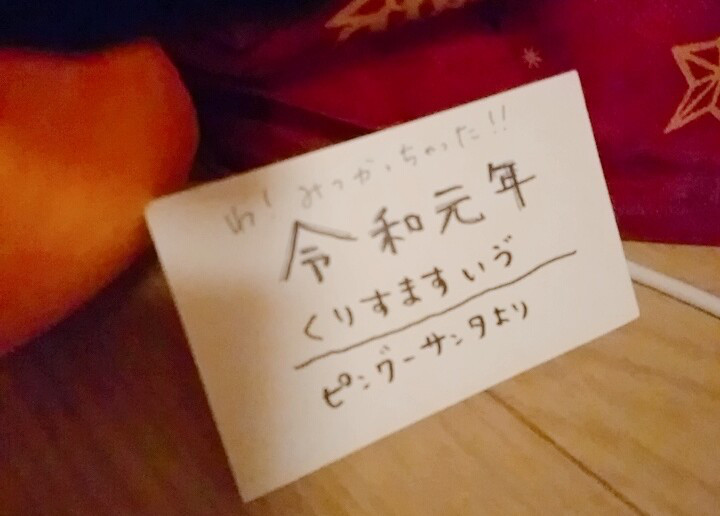 わ!みつかっちゃった!!
令和元年
くりすますいゔ
ピングーサンタより